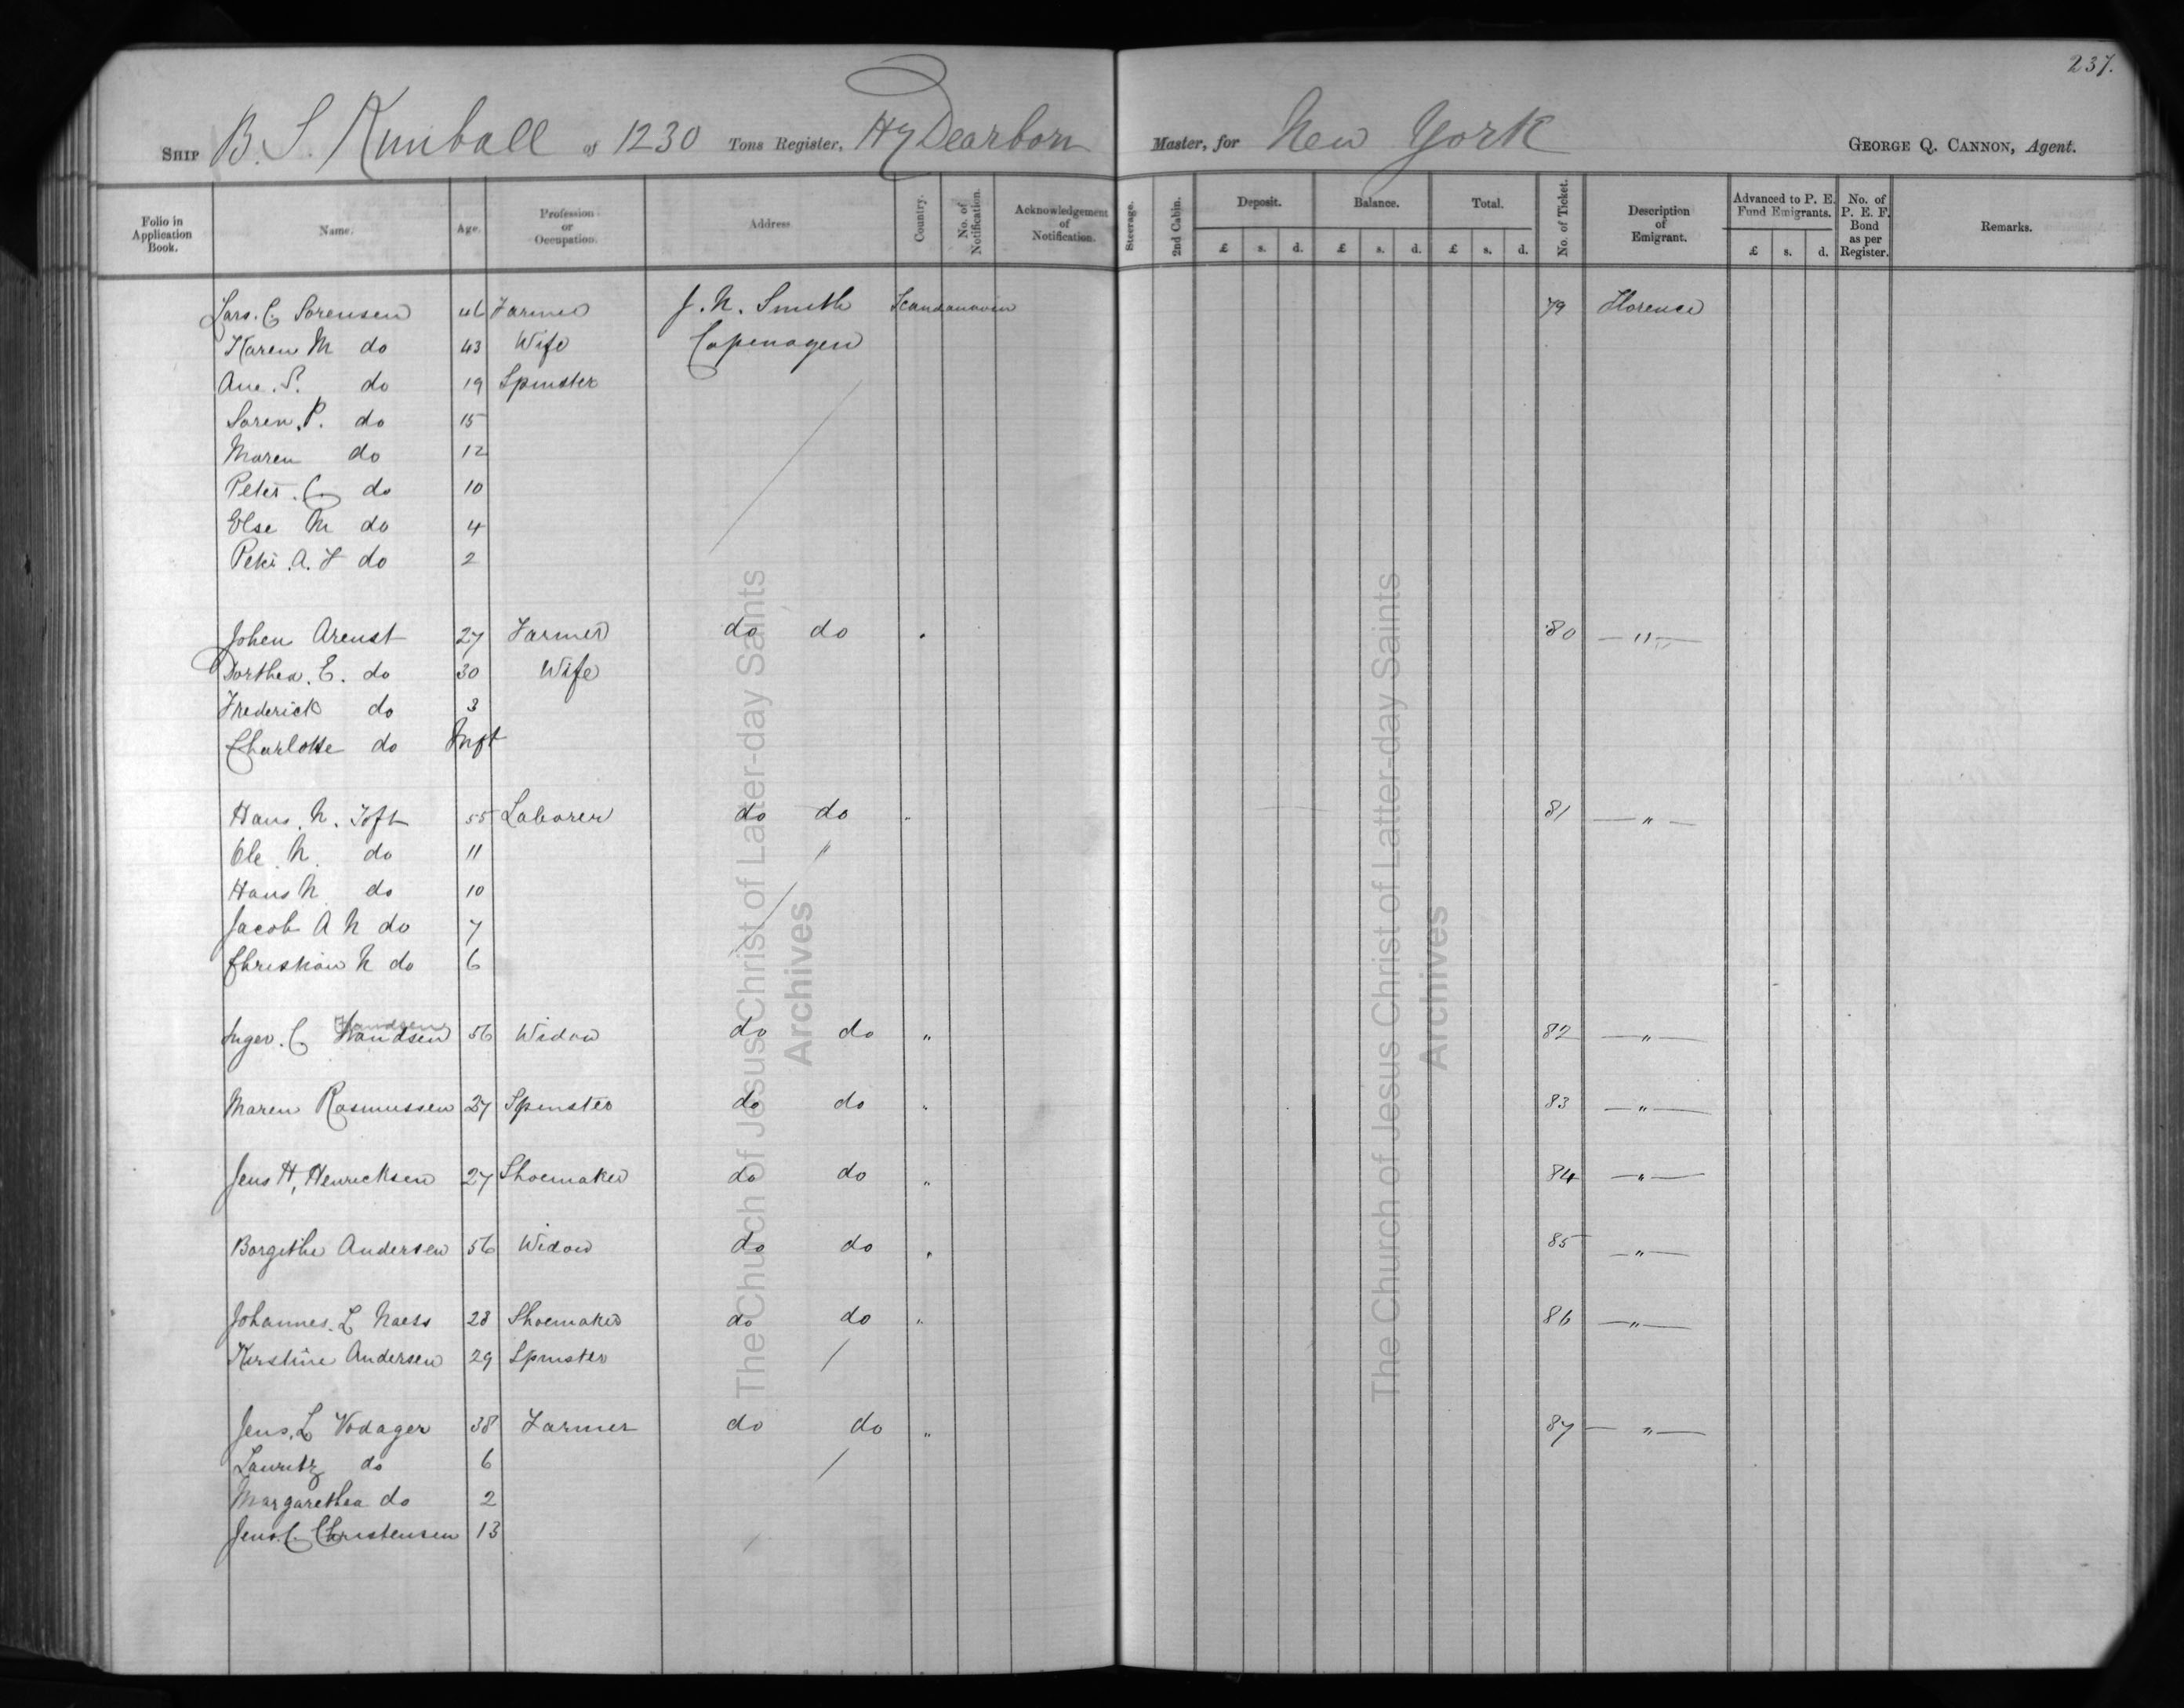 237.
SHIP B. S. Kimball of 1230 Tons Register, Hy Dearborn Master, for New York GEORGE Q. CANNON, Agent.
Folio in Application Book. Name. Age. Profession or Occupation. Address. Country. No. of Notification. Acknowledgement of Notification. Steerage. 2nd Cabin. Deposit. £ s. d. Balance. £ s. d. Total. £ s. d. No. of Ticket. Description of Emigrant. Advanced to P. E. Fund Emigrants. £ s. d. No. of P. E. F. Bond as per Register. Remarks.
Lars. C. Sorensen 46 Farmer J. N. Smith Scandanavien 79 Florence
Karen M do 43 Wife Copenagen
Ane. S. do 19 Spinster
Soren. P. do 15
Maren do 12
Peter. C. do 10
Else M do 4
Peter. A. F do 2
Johen Arenst 27 Farmer do do " 80 — " —
Dorthea. E. do 30 Wife
Frederick do 3
Charlotte do Inft
Hans. N. Toft 55 Laborer do do " 81 — " —
Ole N. do 11 "
Hans N do 10
Jacob A N do 7
Christian N do 6
Inger. C Handsen 56 Widow do do " 82 — " —
Maren Rasmussen 27 Spinster do do " 83 — " —
Jens H, Henricksen 27 Shoemaker do do " 84 — " —
Borgithe Andersen 56 Widow do do " 85 — " —
Johannes. L Naess 28 Shoemaker do do " 86 — " —
Kirstine Andersen 29 Spinster
Jens. L Vodager 38 Farmer do do " 87 — " —
Lauritz do 6
Margarethea do 2
Jens. C. Christensen 13
The Church of Jesus Christ of Latter-day Saints
Archives
The Church of Jesus Christ of Latter-day Saints
Archives